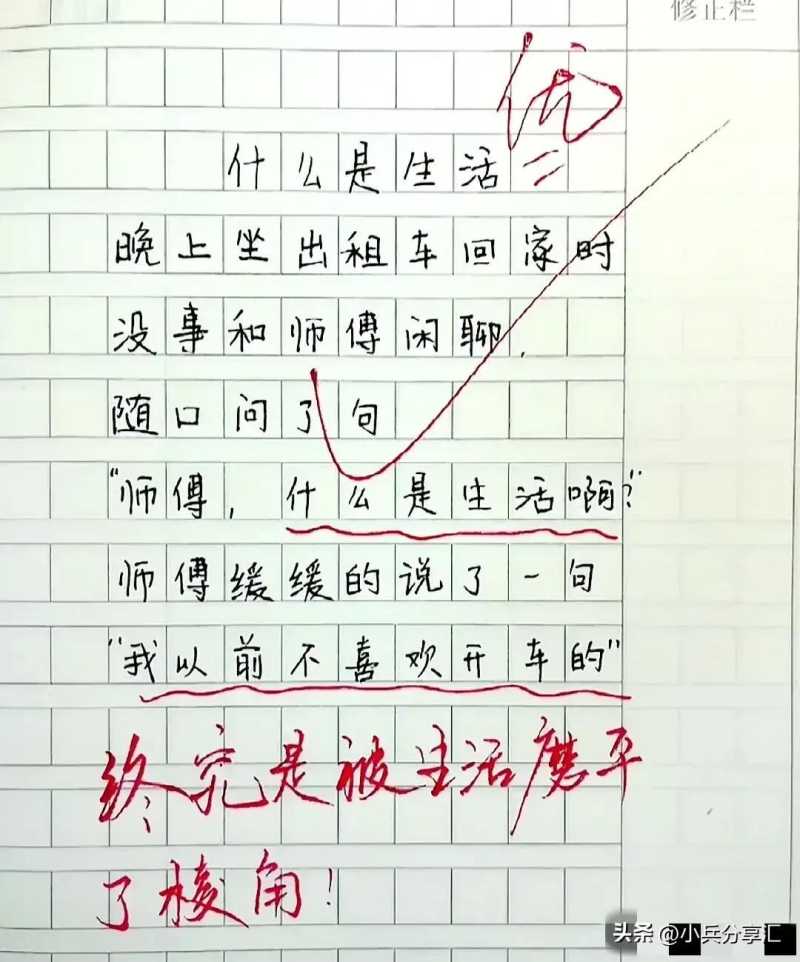 修正栏
优
什么是生活
晚上坐出租车回家时
没事和师傅闲聊，
随口问了句
“师傅，什么是生活啊？”
师傅缓缓的说了一句
“我以前不喜欢开车的”
终究是被生活磨平
了棱角！
头条 @小兵分享汇